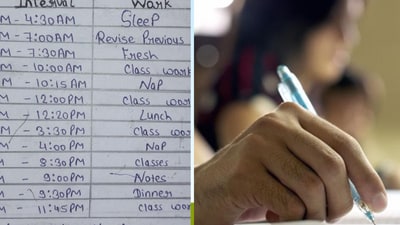 Interval Work
M - 4:30AM Sleep
M - 7:00AM Revise Previous
M - 7:30AM Fresh
M - 10:00AM class work
M - 10:15AM Nap
M - 12:00PM class work
M - 12:20PM Lunch
M - 3:30PM class work
M - 4:00PM Nap
M - 8:30PM classes
M - 9:00PM Notes
M - 9:30PM Dinner
M - 11:45PM class work